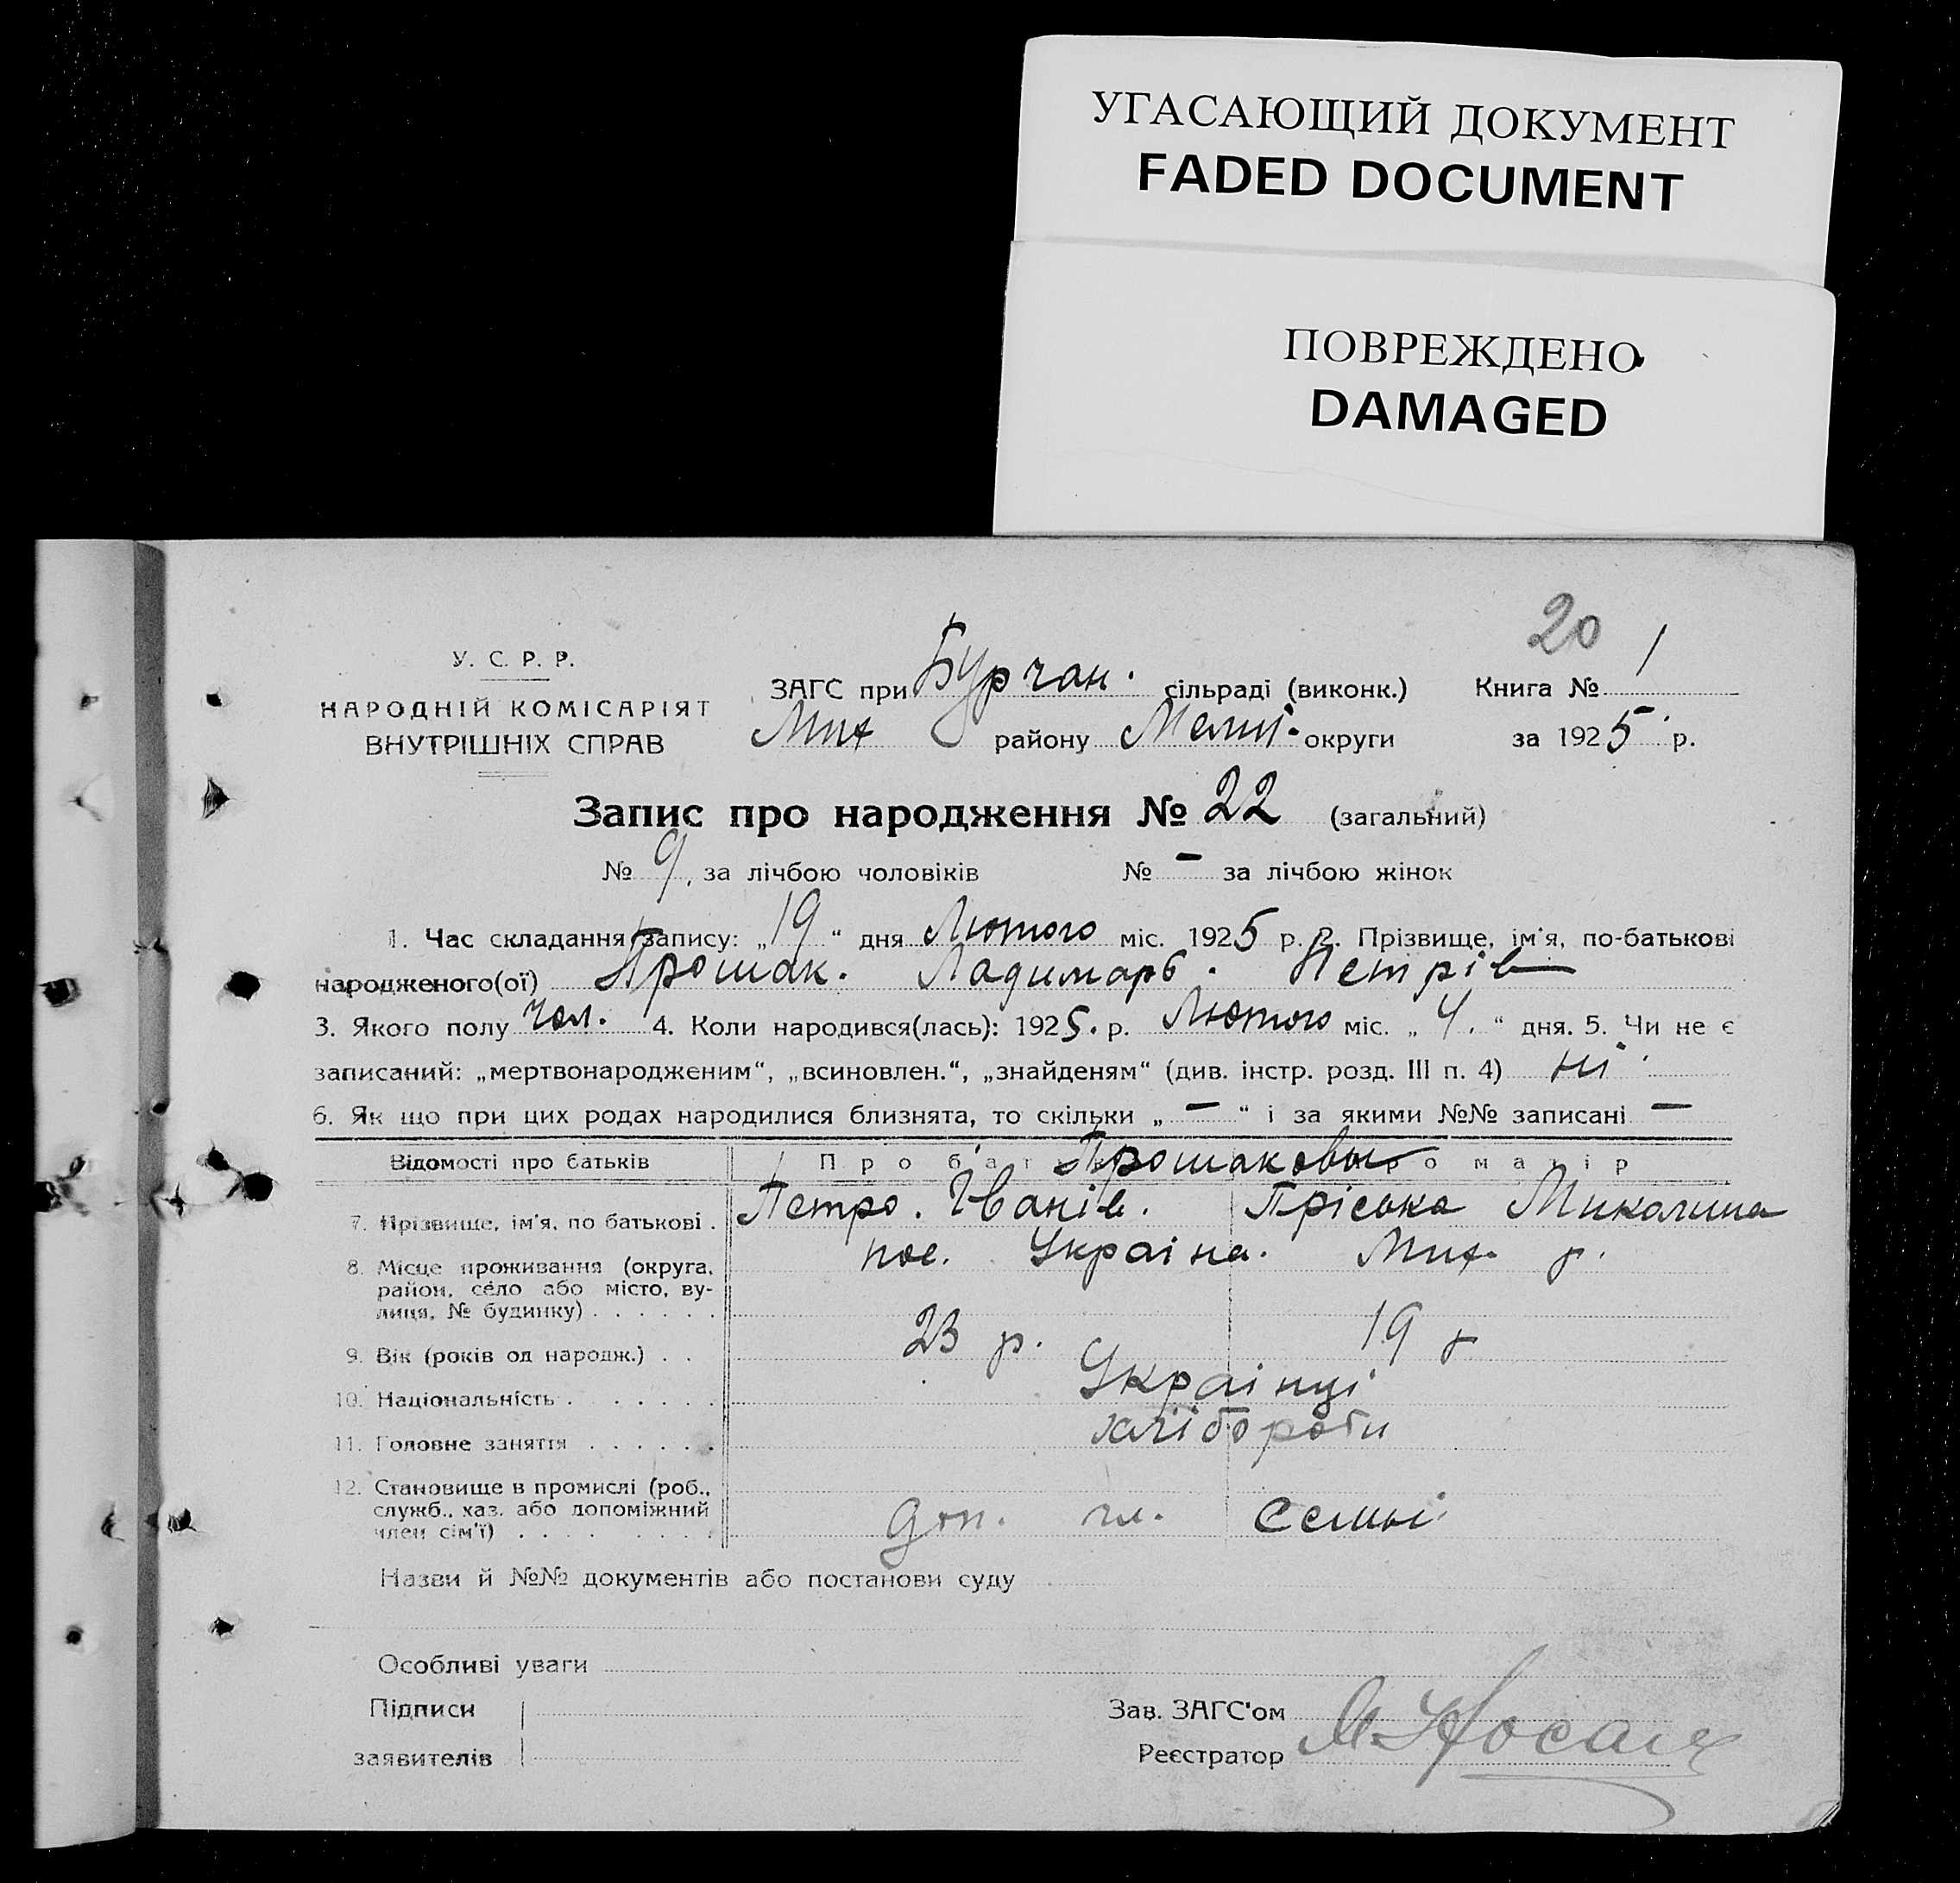 УГАСАЮЩИЙ ДОКУМЕНТ
FADED DOCUMENT
ПОВРЕЖДЕНО
DAMAGED
20
У. С. Р. Р.
НАРОДНІЙ КОМІСАРІЯТ
ВНУТРІШНІХ СПРАВ
ЗАГС при Бурчан. сільраді (виконк.) Книга № 1
Мих району Мелит. округи за 1925 р.
Запис про народження № 22 (загальний)
№ 9, за лічбою чоловіків № – за лічбою жінок
1. Час складання запису: „19“ дня Лютого міс. 1925 р. 2. Прізвище, ім'я, по-батькові
народженого(ої) Прошак. Ладимарь. Петрів
3. Якого полу чол. 4. Коли народився(лась): 1925. р. Лютого міс. „4.“ дня. 5. Чи не є
записаний: „мертвонародженим“, „всиновлен.“, „знайденям“ (див. інстр. розд. III п. 4) ні
6. Як що при цих родах народилися близнята, то скільки „–“ і за якими №№ записані –
Відомості про батьків Про батька Прошаковы Про матір
7. Прізвище, ім'я, по батькові . Петро. Іванів. Пріська Миколина
8. Місце проживання (округа, пос. Україна. Мих. р.
район, село або місто, ву-
лиця, № будинку) . . . . . .
9. Вік (років од народж.) . . 23 р. 19 р
10. Національність . . . . . . . Українці
11. Головне заняття . . . . . . хлібороби
12. Становище в промислі (роб.,
служб., хаз. або допоміжний доп. чл. семьї
член сім'ї) . . . . . . .
Назви й №№ документів або постанови суду
Особливі уваги
Підписи
заявителів
Зав. ЗАГС'ом
Реєстратор